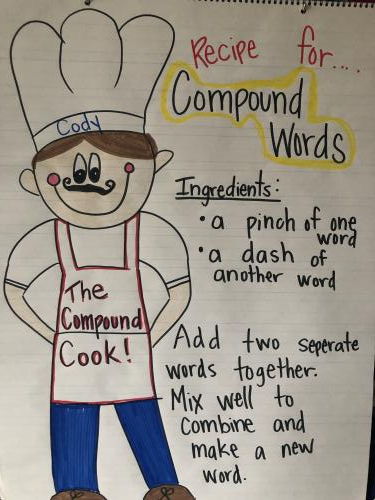 Recipe for....
Compound
Words
Cody
Ingredients:
• a pinch of one
word
• a dash of
another word
The
Compound
Cook!
Add two seperate
words together.
Mix well to
combine and
make a new
word.